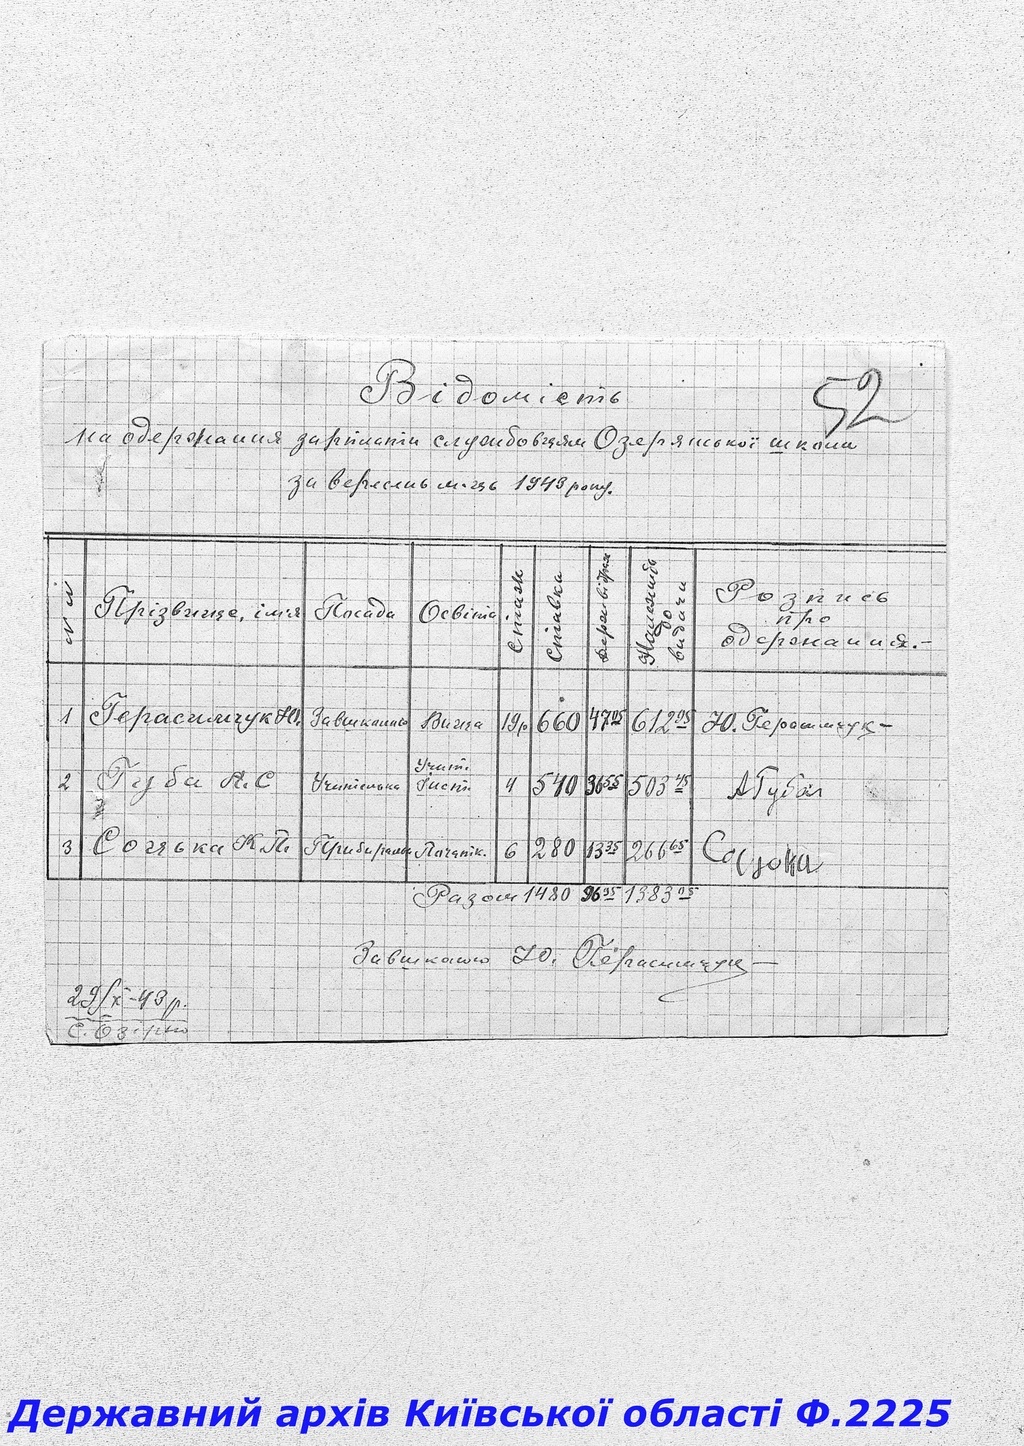 Відомість
52
на одержання зарплати службовцям Озерянської школи
за вересень м-ць 1943 року.
№ № Прізвище, ім'я Посада Освіта Стаж Ставка Держ. відрах Належить до видачи Розпись про одержання.-
1 Герасимчук Ю. Завшколою Вища 19р 660 47 05 612 95 Ю. Герасимчук-
2 Губа А.С Учителька Учит. Инст. 4 540 36 55 503 45 АГуба
3 Соцька К.П. Прибиральн. Початк. 6 280 13 35 266 65 Соцька
Разом 1480 96 95 1383 05
Завшколою Ю. Герасимчук-
29/X-43 р.
с. Озірно
Державний архів Київської області Ф.2225